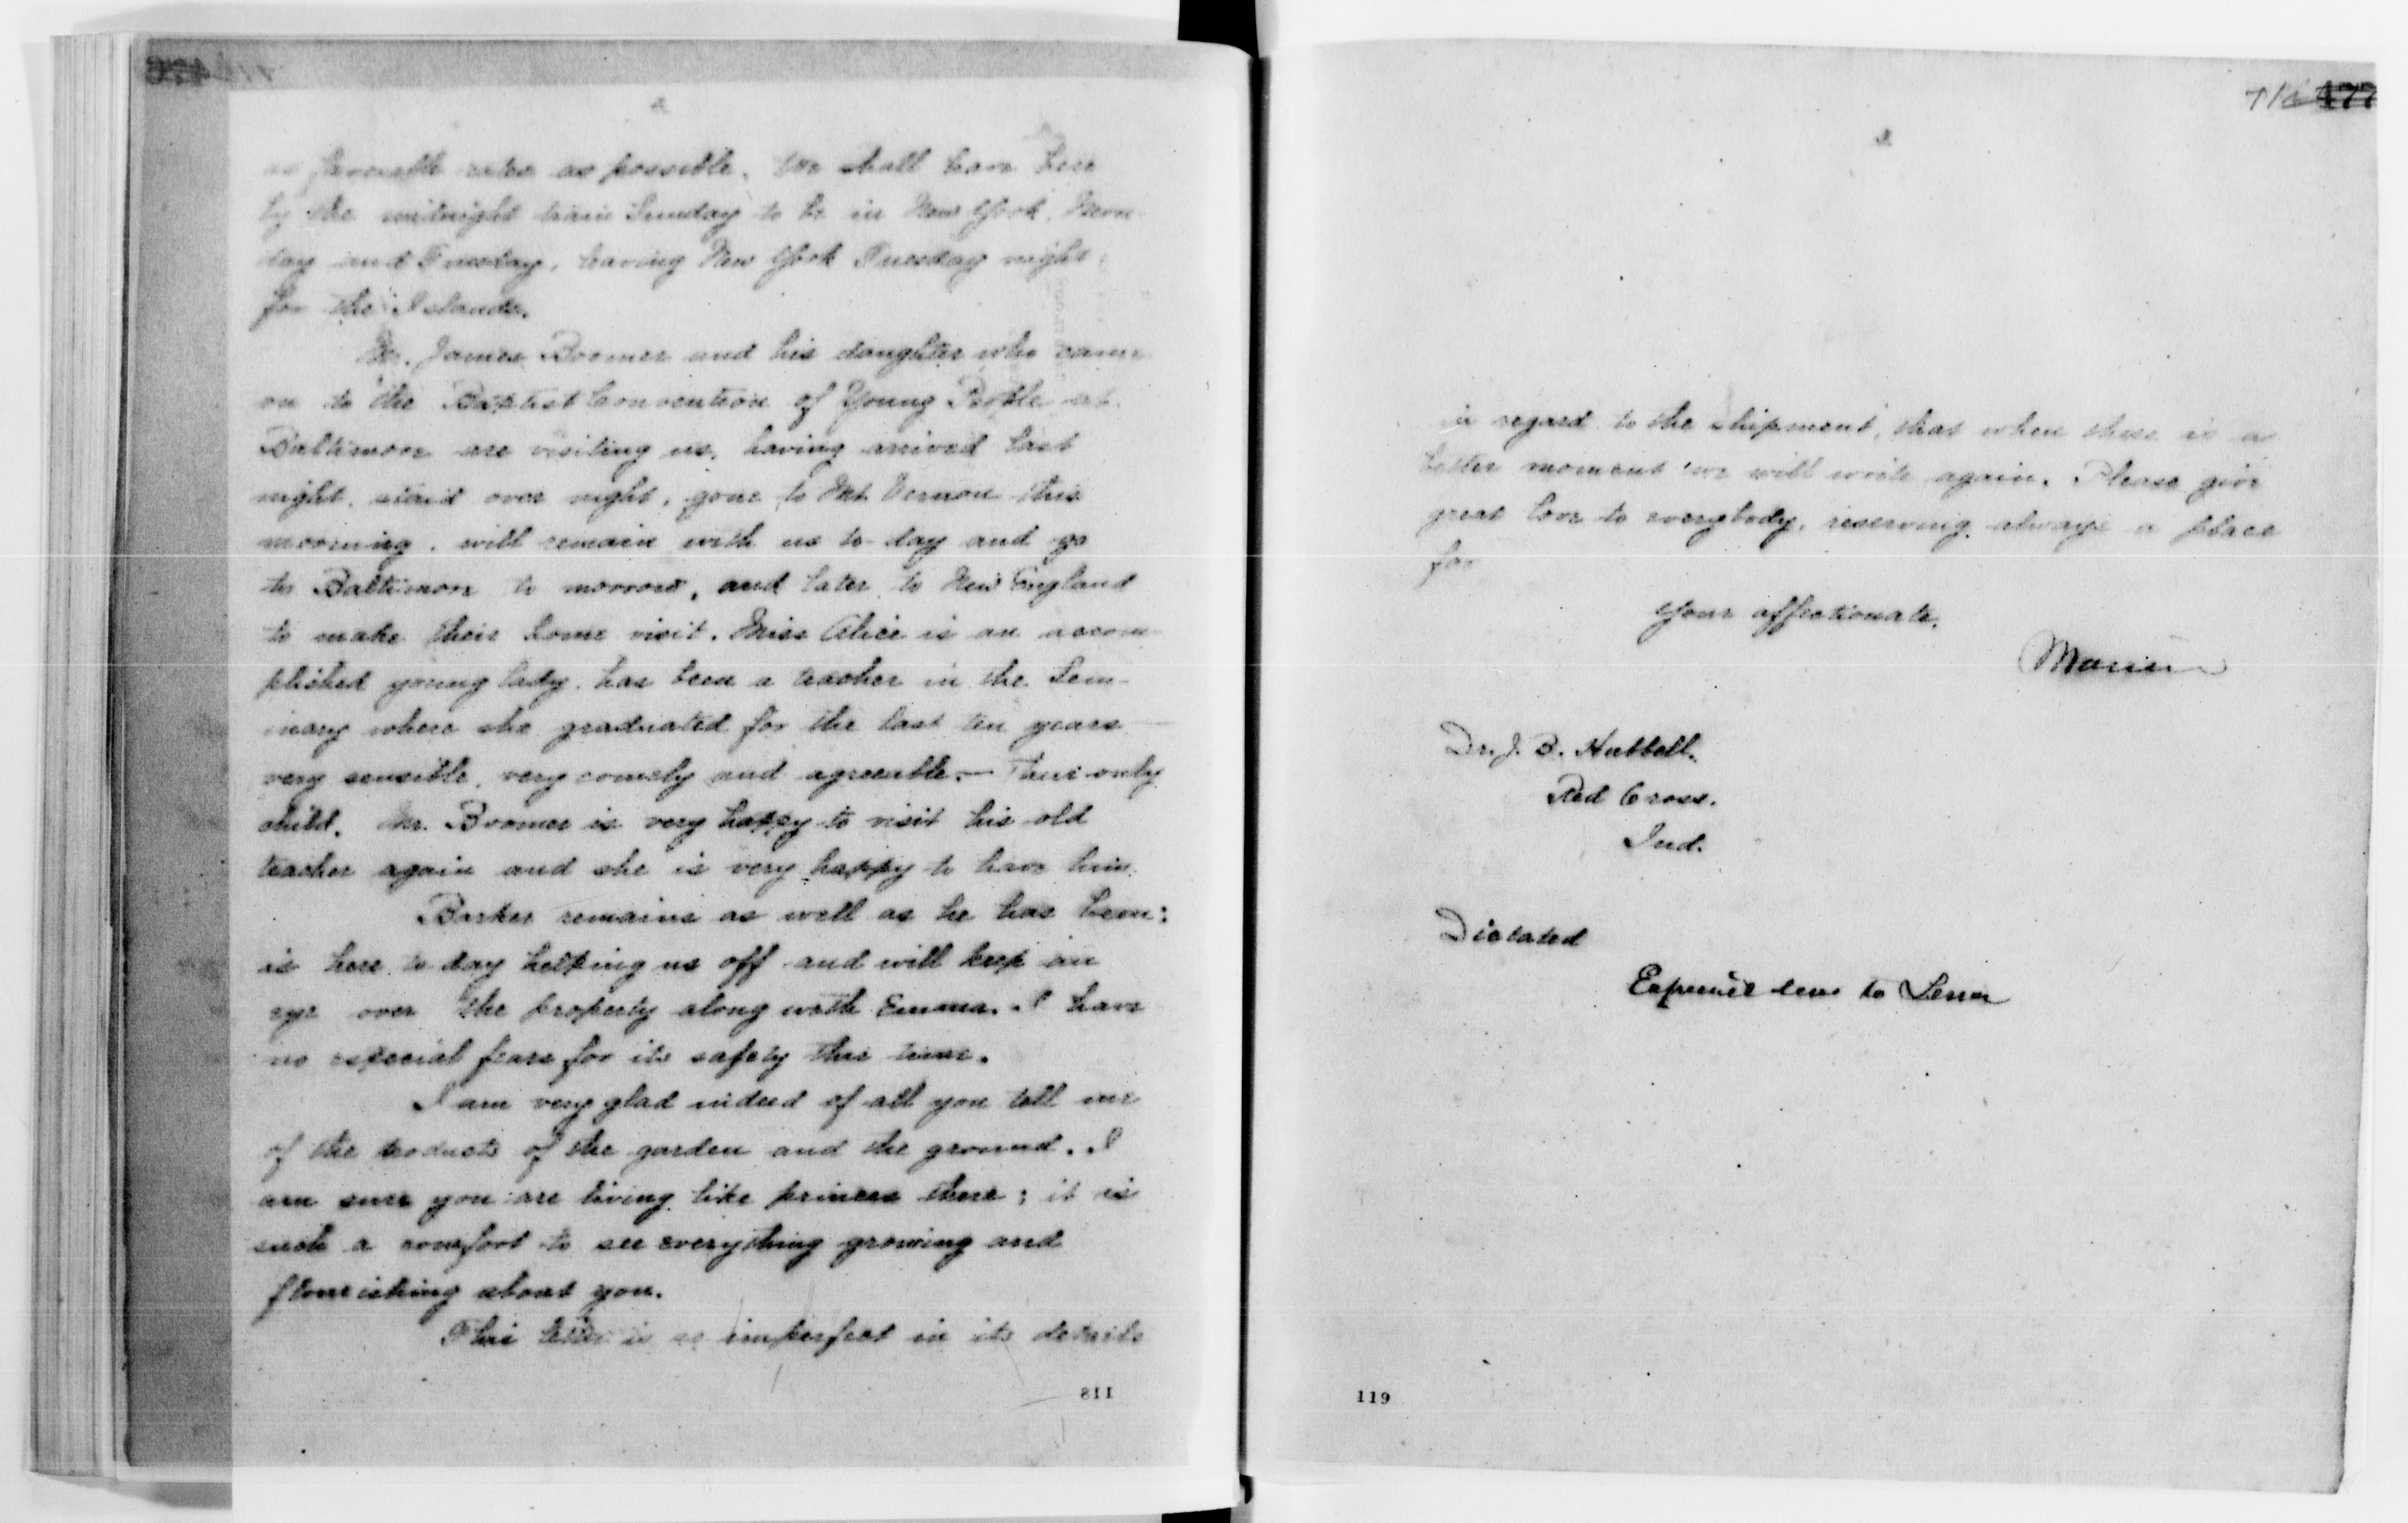 2
as favorable rates as possible. We shall leave here
by the midnight train Sunday to be in New York Mon-
day and Tuesday, leaving New York Tuesday night
for the Islands.
Mr. James Boomer and his daughter who came
on to the Baptist Convention of Young People at
Baltimore are visiting us, having arrived last
night, staid over night, gone to Mt. Vernon this
morning, will remain with us to-day and go
to Baltimore to morrow, and later to New England
to make their home visit. Miss Alice is an accom-
plished young lady, has been a teacher in the Sem-
inary where she graduated for the last ten years
very sensible, very comely and agreeable.— Their only
child. Mr. Boomer is very happy to visit his old
teacher again and she is very happy to have him.
Barker remains as well as he has been;
is here to day helping us off and will keep an
eye over the property along with Emma. I have
no especial fears for its safety this time.
I am very glad indeed of all you tell me
of the products of the garden and the ground. I
am sure you are living like princes there; it is
such a comfort to see everything growing and
flourishing about you.
This letter is so imperfect in its details
118
477
3
in regard to the shipment, that when there is a
better moment we will write again. Please give
great love to everybody, reserving always a place
for
Your affectionate,
Dr. J. B. Hubbell.
Red Cross.
Ind.
Dictated
to
119